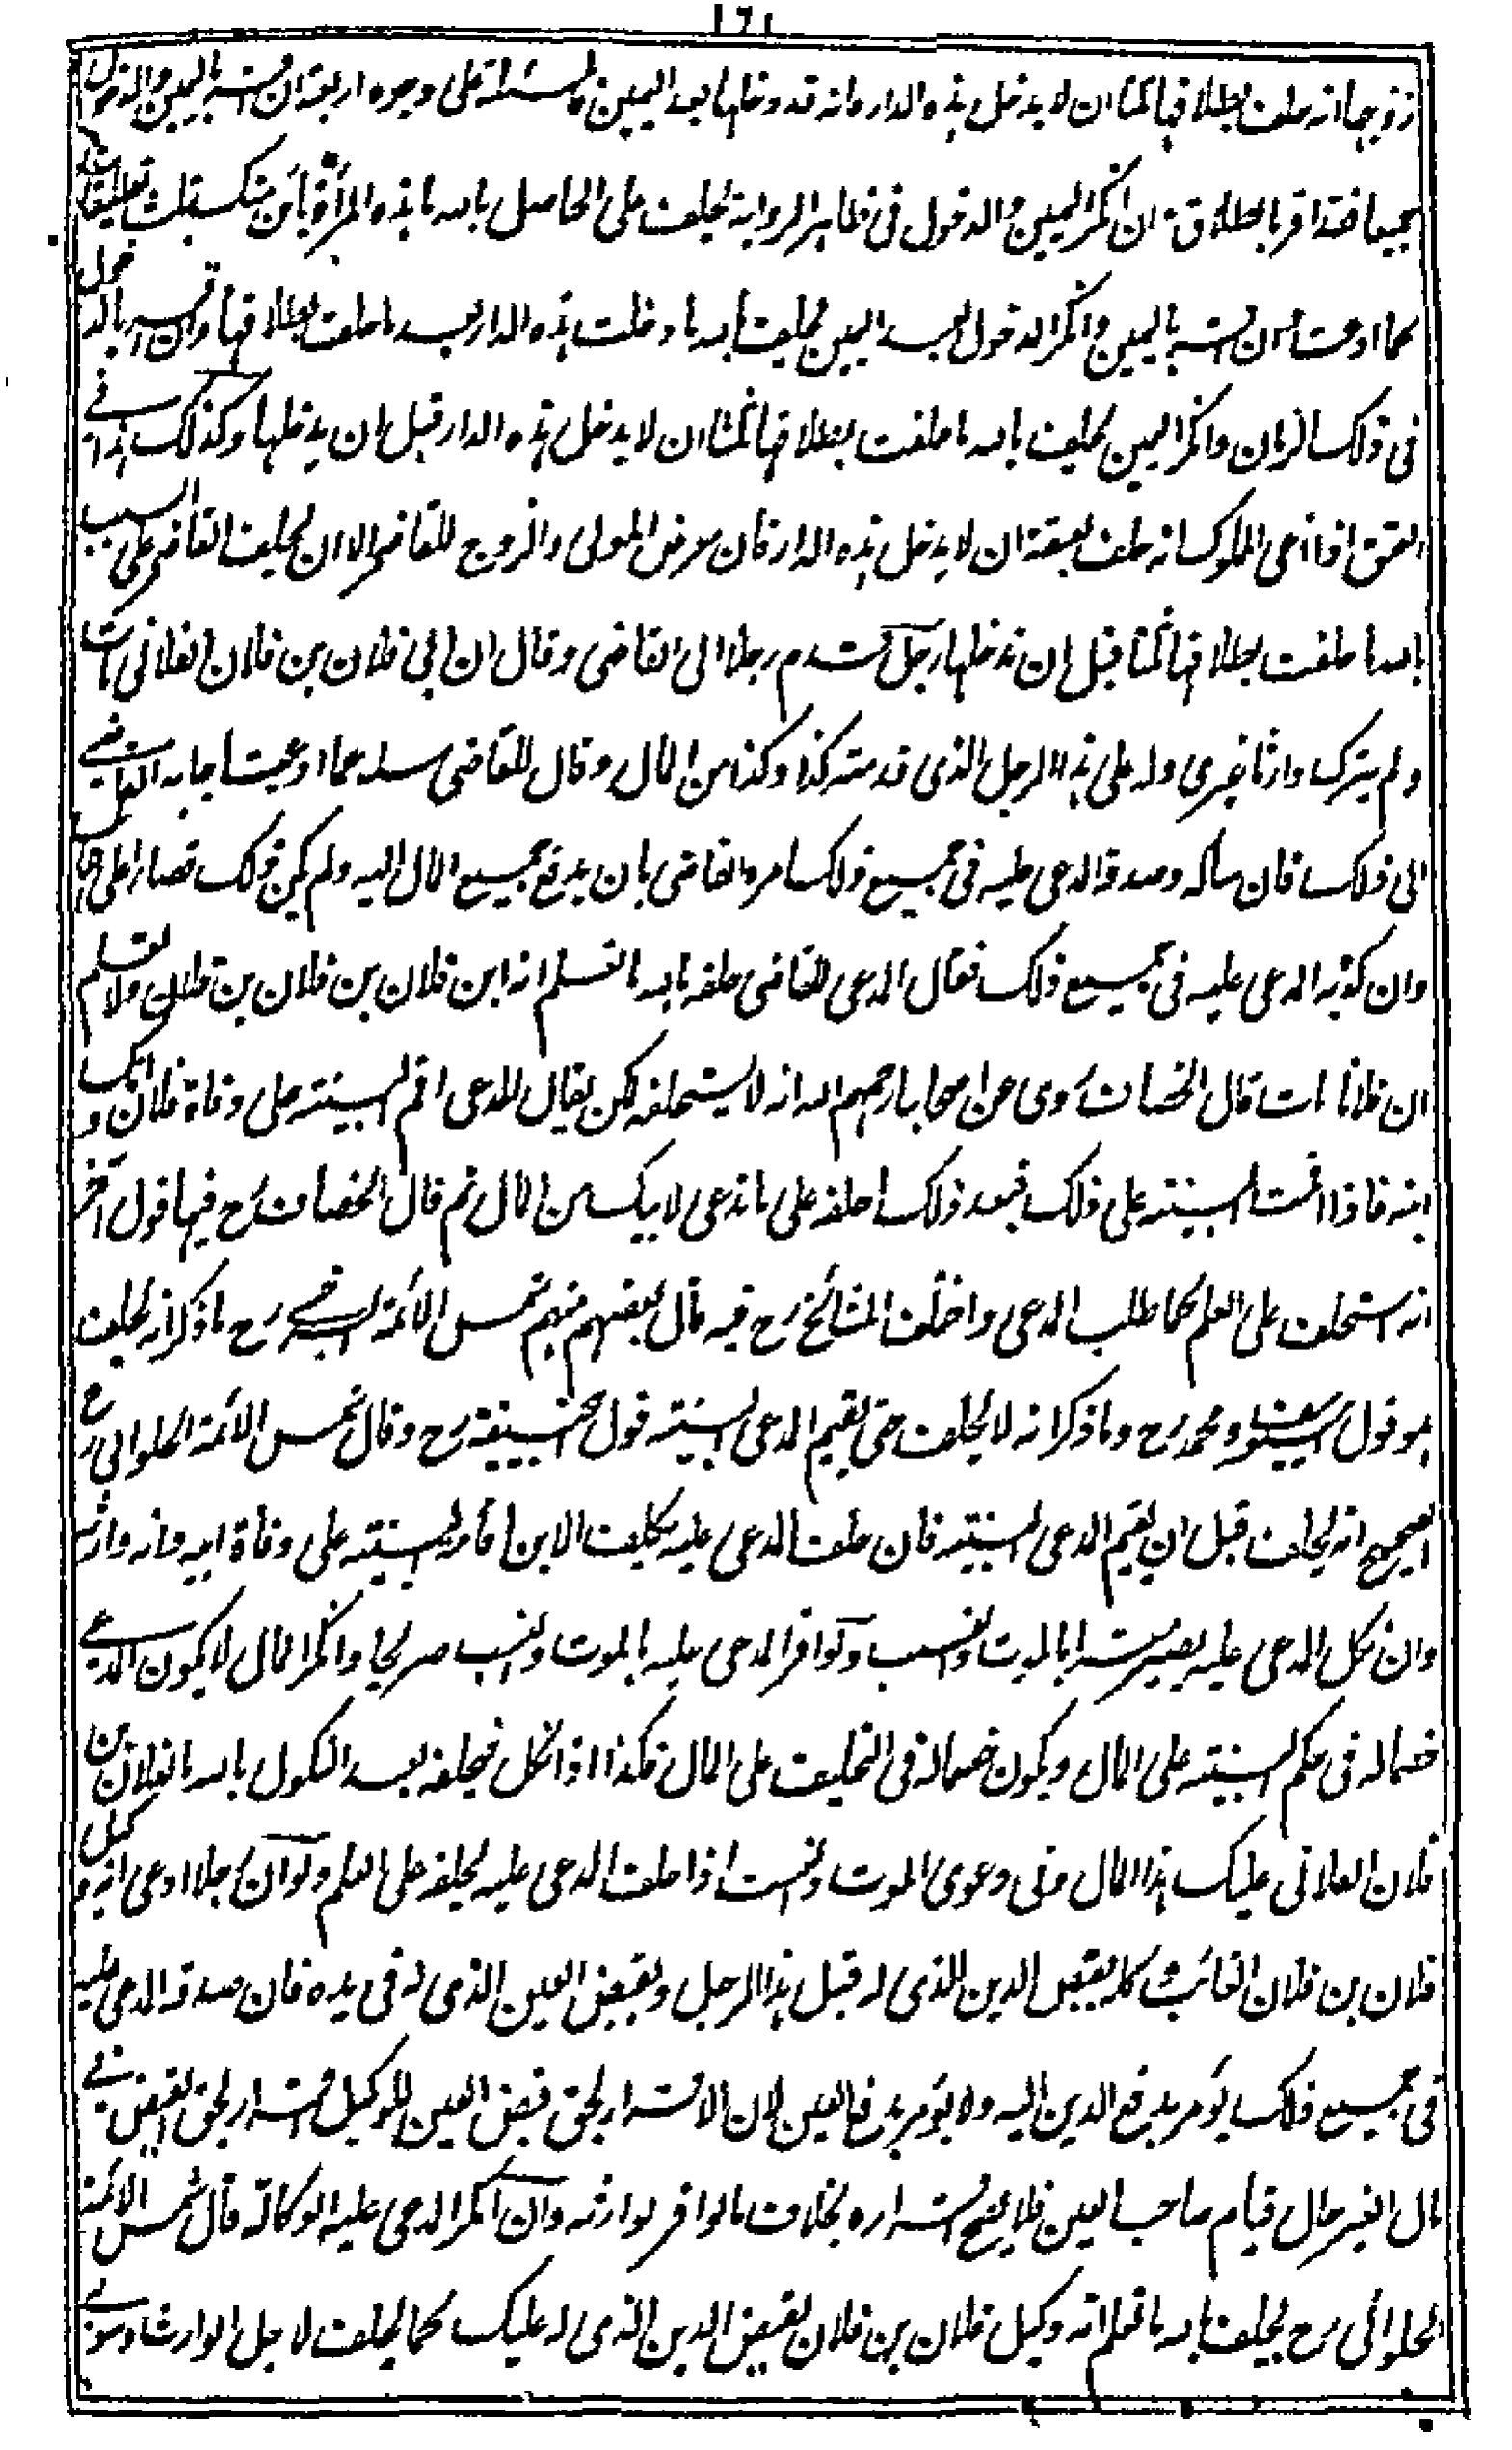 ١٦١
زوجها انه حلف بطلاقها ثلثا ان لا يدخل هذه الدار وانه قد دخلها بعد اليمين فالمسئلة على وجوه اربعة ان اقر باليمين والدخول
جميعا فقد اقر بالطلاق وان انكر اليمين والدخول فى ظاهر الرواية يحلف على الحاصل بالله ما هذه المرأة بائن منك بثلث تطليقات
كما ادعت وان اقر باليمين وانكر الدخول بعد اليمين يحلف بالله ما دخلت هذه الدار بعد ما حلفت بطلاقها وان اقر بالدخول
فى ذلك الزمان وانكر اليمين يحلف بالله ما حلفت بطلاقها ثلثا ان لا يدخل هذه الدار قبل ان يدخلها وكذلك هذا فى
العتق اذا ادعى المملوك انه حلف بعتقه ان لا يدخل هذه الدار فان عرض المولى والزوج للقاضى الا ان يحلف القاضى على السبب
بالله ما حلفت بطلاقها ثلثا قبل ان تدخلها رجل قدم رجلا الى القاضى وقال ان ابى فلان بن فلان الفلانى مات
ولم يترك وارثا غيرى وله على هذا الرجل الذى قدمته كذا وكذا من المال وقال للقاضى سله عما ادعيت اجابه القاضى
الى ذلك فان سأله وصدقه المدعى عليه فى جميع ذلك امره القاضى بان يدفع جميع المال اليه ولم يكن ذلك قضاء على
وان كذبه المدعى عليه فى جميع ذلك فقال المدعى للقاضى حلفه بالله ما تعلم انه ابن فلان بن فلان بن فلان ولا تعلم
ان فلانا مات قال الخصاف روى عن اصحابنا رحمهم الله انه لا يستحلفه لكن يقال للمدعى اقم البينة على وفاة فلان وانك
ابنه فاذا اقمت البينة على ذلك فبعد ذلك احلفه على ما تدعى لابيك من المال ثم قال الخصاف رح فيها قول آخر
انه يستحلف على العلم كما طلب المدعى واختلف المشائخ رح فيه قال بعضهم منهم شمس الائمة السرخسى رح ما ذكر انه يحلف
هو قول ابى يوسف ومحمد رح وما ذكر انه لا يحلف حتى يقيم المدعى البينة قول ابى حنيفة رح وقال شمس الائمة الحلوانى رح
الصحيح انه يحلف قبل ان يقيم المدعى البينة فان حلف المدعى عليه يكلف الابن اقامة البينة على وفاة ابيه وانه وارثه
وان نكل المدعى عليه يصير مقرا بالموت والنسب ولو اقر المدعى عليه بالموت والنسب صريحا وانكر المال لا يكون المدعى
خصما له فى حكم البينة على المال ويكون خصما له فى التحليف على المال فكذا اذا نكل فيحلفه بعد النكول بالله ما لفلان بن
فلان الفلانى عليك هذا المال وفى دعوى الموت والنسب اذا حلف المدعى عليه يحلفه على العلم ولو ان رجلا ادعى انه وكيل
فلان بن فلان الغائب وكله بقبض الدين الذى له قبل هذا الرجل وبقبض العين الذى له فى يده فان صدقه المدعى عليه
فى جميع ذلك يؤمر بدفع الدين اليه ولا يؤمر بدفع العين لان الاقرار بحق قبض العين للوكيل اقرار بحق القبض فى
مال الغير حال قيام صاحب العين فلا يصح اقراره بخلاف ما لو اقر لوارثه وان انكر المدعى عليه الوكالة قال شمس الائمة
الحلوانى رح يحلف بالله ما تعلم انه وكيل فلان بن فلان بقبض الدين الذى له عليك كما يحلف لاجل الوارث